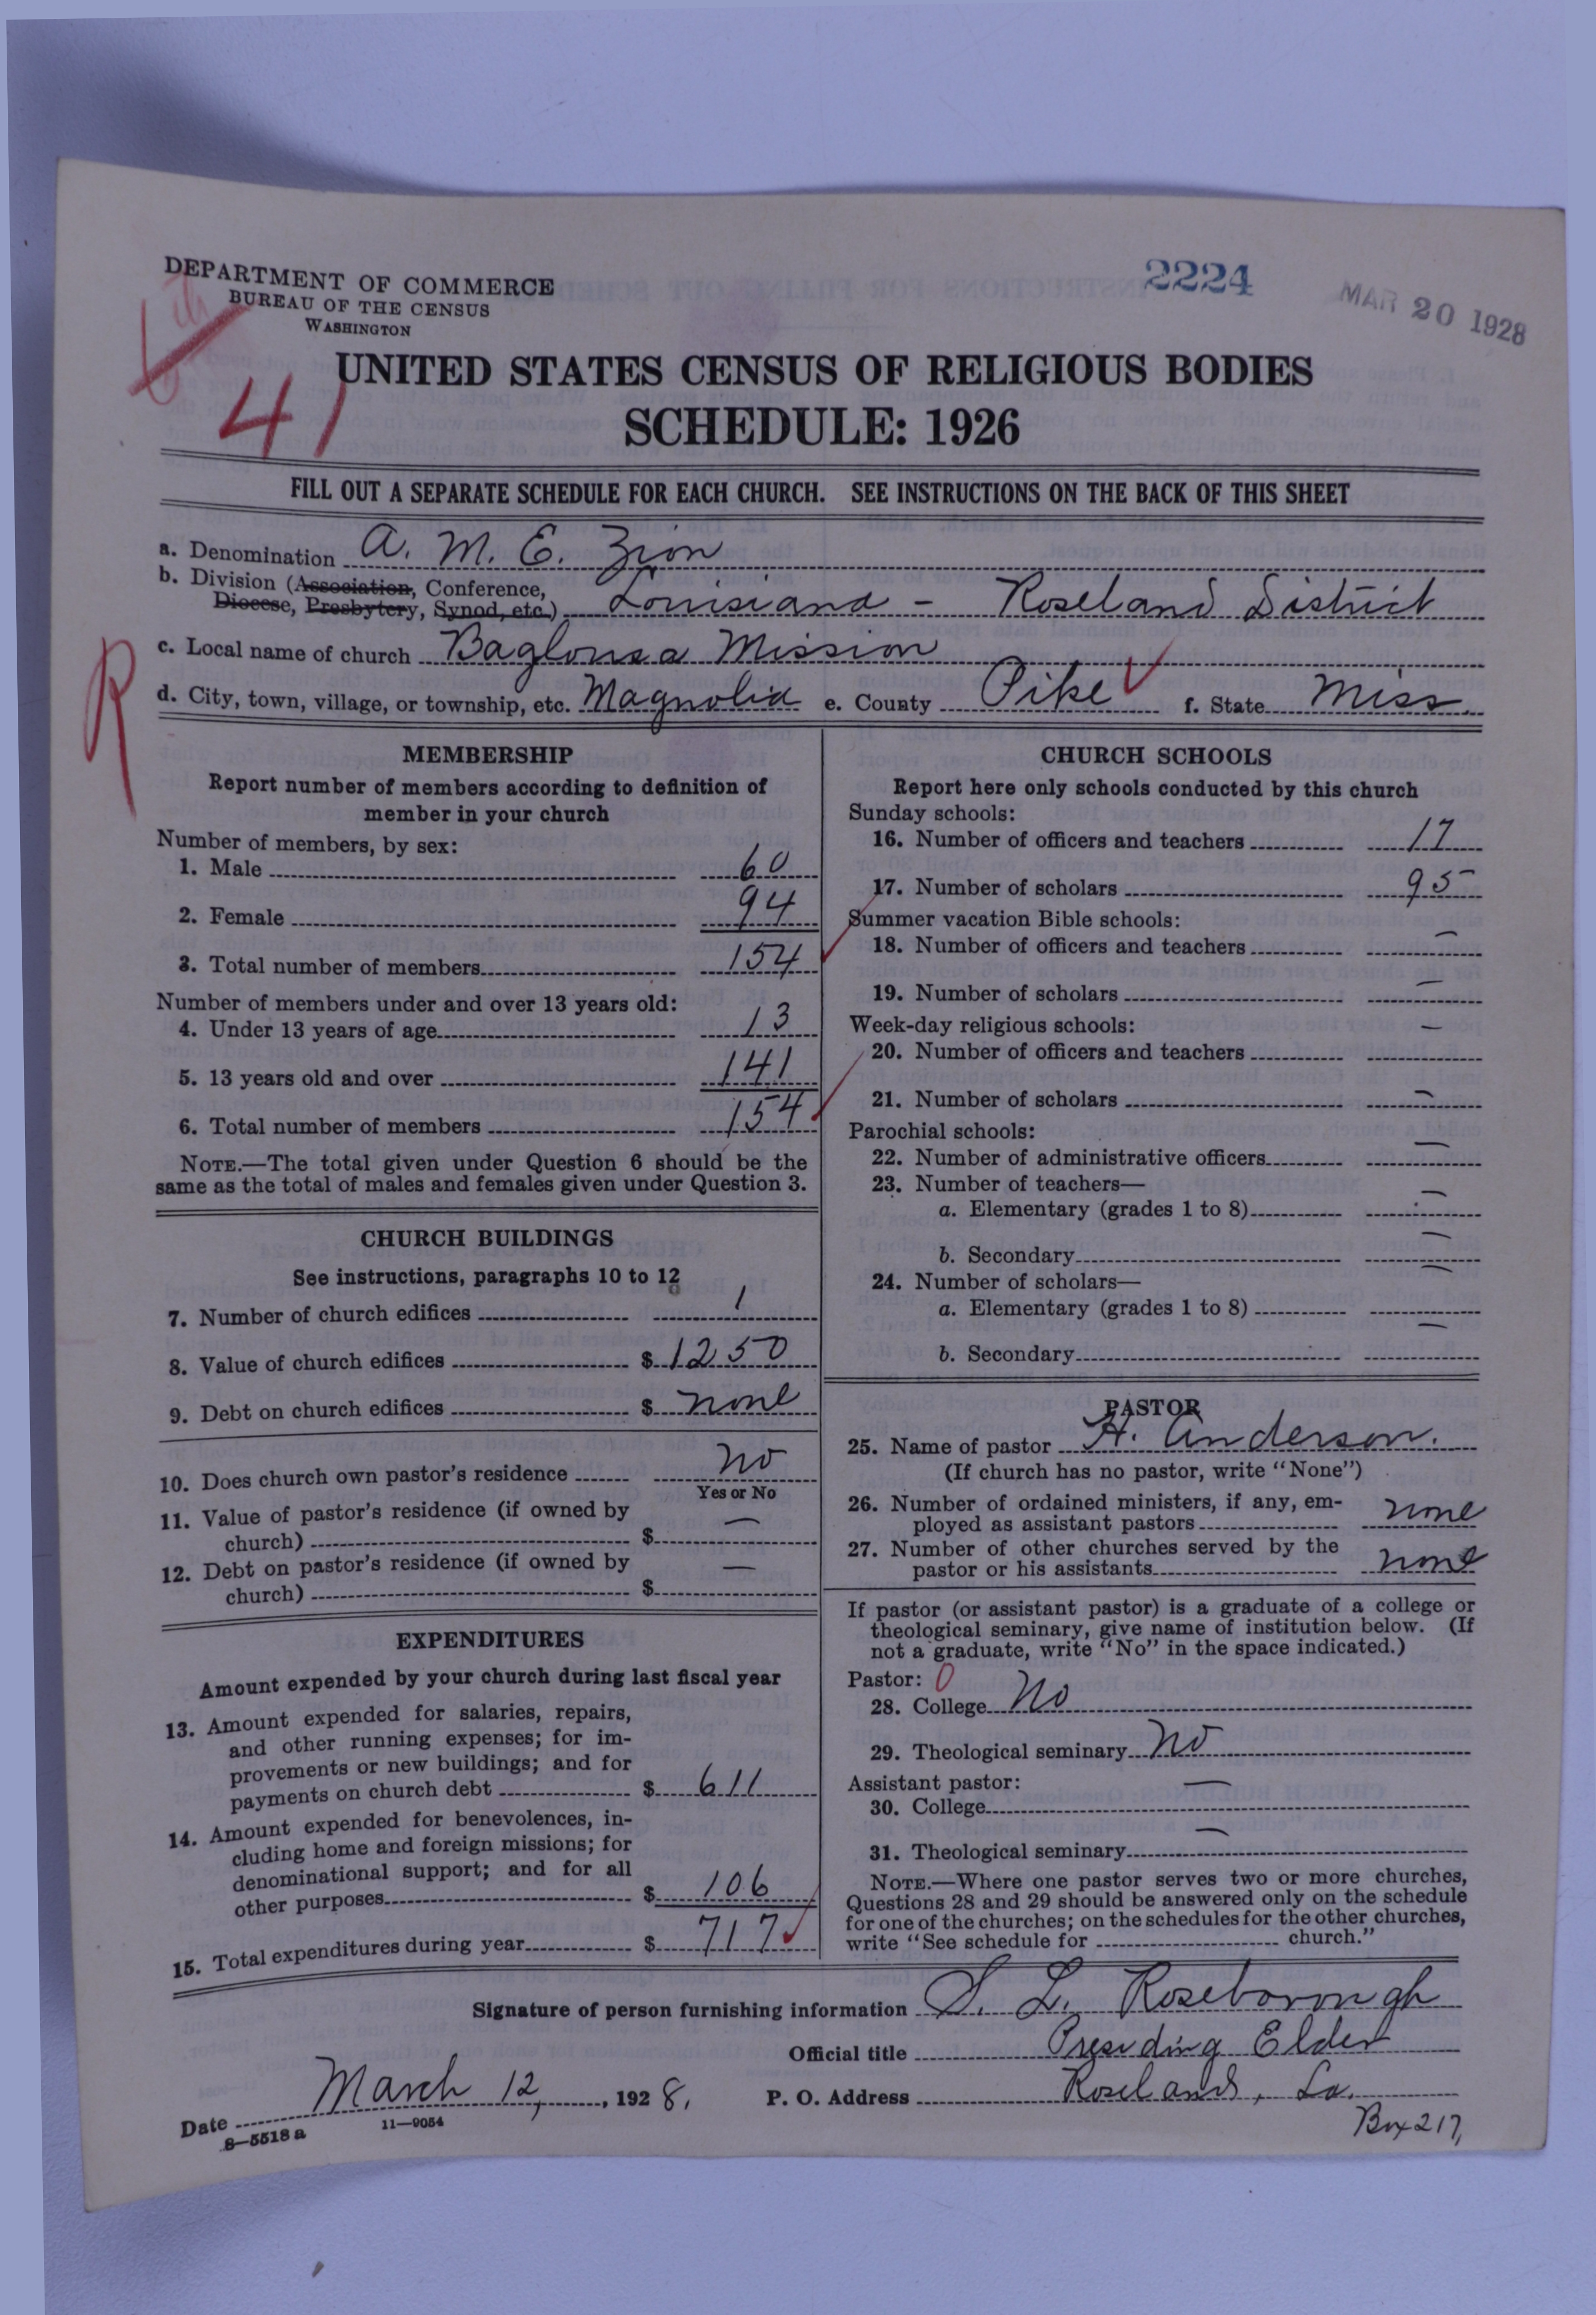 DEPARTMENT OF COMMERCE
BUREAU OF THE CENSUS
WASHINGTON
2224
MAR 20 1928
41
UNITED STATES CENSUS OF RELIGIOUS BODIES
SCHEDULE: 1926
FILL OUT A SEPARATE SCHEDULE FOR EACH CHURCH. SEE INSTRUCTIONS ON THE BACK OF THIS SHEET
a. Denomination A. M. E. Zion
b. Division (Association, Conference,
Diocese, Presbytery, Synod, etc.) Louisiana - Roseland District
R
c. Local name of church Baglousa Mission
d. City, town, village, or township, etc. Magnolia e. County Pike f. State Miss.
MEMBERSHIP
Report number of members according to definition of
member in your church
Number of members, by sex:
1. Male 60
2. Female 94
3. Total number of members 154
Number of members under and over 13 years old:
4. Under 13 years of age 13
5. 13 years old and over 141
6. Total number of members 154
NOTE.—The total given under Question 6 should be the
same as the total of males and females given under Question 3.
CHURCH BUILDINGS
See instructions, paragraphs 10 to 12
7. Number of church edifices 1
8. Value of church edifices $ 1250
9. Debt on church edifices $ none
10. Does church own pastor's residence no
Yes or No
11. Value of pastor's residence (if owned by
church) $ —
12. Debt on pastor's residence (if owned by
church) $ —
EXPENDITURES
Amount expended by your church during last fiscal year
13. Amount expended for salaries, repairs,
and other running expenses; for im-
provements or new buildings; and for
payments on church debt $ 611
14. Amount expended for benevolences, in-
cluding home and foreign missions; for
denominational support; and for all
other purposes $ 106
15. Total expenditures during year $ 717
CHURCH SCHOOLS
Report here only schools conducted by this church
Sunday schools:
16. Number of officers and teachers 17
17. Number of scholars 95
Summer vacation Bible schools:
18. Number of officers and teachers —
19. Number of scholars —
Week-day religious schools:
20. Number of officers and teachers —
21. Number of scholars —
Parochial schools:
22. Number of administrative officers —
23. Number of teachers—
a. Elementary (grades 1 to 8) —
b. Secondary —
24. Number of scholars—
a. Elementary (grades 1 to 8) —
b. Secondary —
PASTOR
25. Name of pastor H. Anderson.
(If church has no pastor, write "None")
26. Number of ordained ministers, if any, em-
ployed as assistant pastors none
27. Number of other churches served by the
pastor or his assistants none
If pastor (or assistant pastor) is a graduate of a college or
theological seminary, give name of institution below. (If
not a graduate, write "No" in the space indicated.)
Pastor: 0
28. College No
29. Theological seminary No
Assistant pastor:
30. College —
31. Theological seminary —
NOTE.—Where one pastor serves two or more churches,
Questions 28 and 29 should be answered only on the schedule
for one of the churches; on the schedules for the other churches,
write "See schedule for church."
Signature of person furnishing information S. L. Roseborough
Official title Presiding Elder
Date March 12, 1928. P. O. Address Roseland, La.
Box 217,
8—5518 a 11—9054